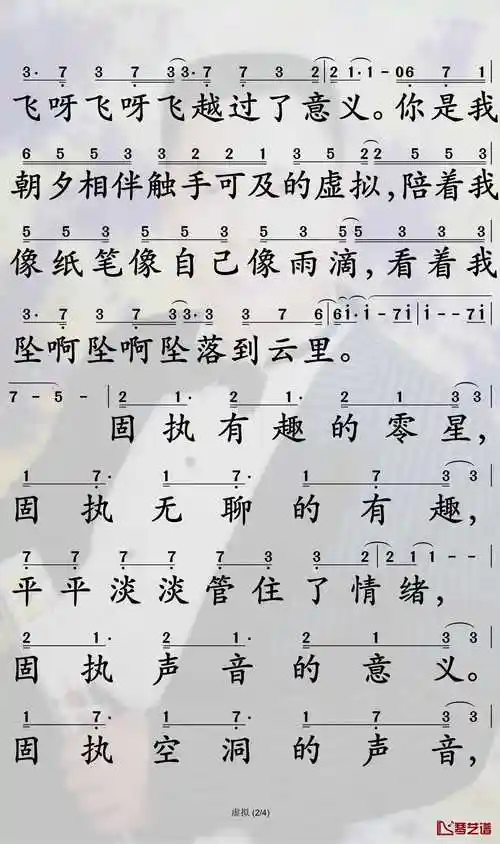 3· 7 3 7 3 3· 7 7 3 2 2 1·1- 06 7 1
飞呀飞呀飞越过了意义。你是我
6 5 5 3 3 2 2 1 3 5 2 2 5 5 3
朝夕相伴触手可及的虚拟,陪着我
5 5 3 5 5 3 3 2 1 5 5 3 3
像纸笔像自己像雨滴,看着我
3· 7 3 7 3 3· 3 7 6 6 i· i - 7 i i - - 7 i
坠啊坠啊坠落到云里。
7 - 5 - 2 1· 2 1· 2 1 3 3
固执有趣的零星,
1 7· 1 7· 1 7 3 3
固执无聊的有趣,
7 7 7 7 7 3 3· 2 2 1 1 - -
平平淡淡管住了情绪,
2 1· 2 1· 2 1 3 3
固执声音的意义。
1 7· 1 7· 1 7 3 3
固执空洞的声音,
虚拟 (2/4)
琴艺谱